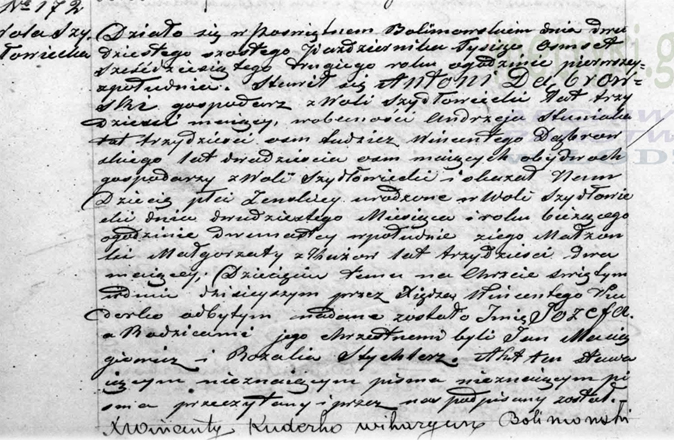 Nº 172.
Wola Szy
dłowiecka
Działo się w poświętnem Bolimowskiem dnia dwu
dziestego szóstego Października Tysiąc Ośmset
sześćdziesiątego drugiego roku o godzinie pierwszej
z południa. Stawił się Antoni Dąbrow-
ski gospodarz z Woli Szydłowieckiej lat trzy
dzieści mający, w obecności Andrzeja Staniaka
lat trzydzieści ośm tudzież Wincentego Dąbrow
skiego lat dwadzieścia ośm mających obydwóch
gospodarzy z Woli Szydłowieckiej i okazał Nam
Dziecię płci żeńskiej urodzone w Woli Szydłowie
ckiej dnia dwudziestego Miesiąca i roku bieżącego
o godzinie dwunastej w południe z jego Małżon
ki Małgorzaty z lat trzydzieści dwa
mającej, Dziecięciu temu na Chrzcie świętym
w dniu dzisiejszym przez Księdza Wincentego Ku
derko odbytym nadane zostało Imię Józefa.
a Rodzicami jego chrzestnemi byli Jan
i Rozalia Stychlerz. Akt ten stawa
jącym nieznającym pisma nieznającym pi
sma przeczytany i przez nas podpisany został.-
X Wincenty Kuderko wikaryusz Bolimowski